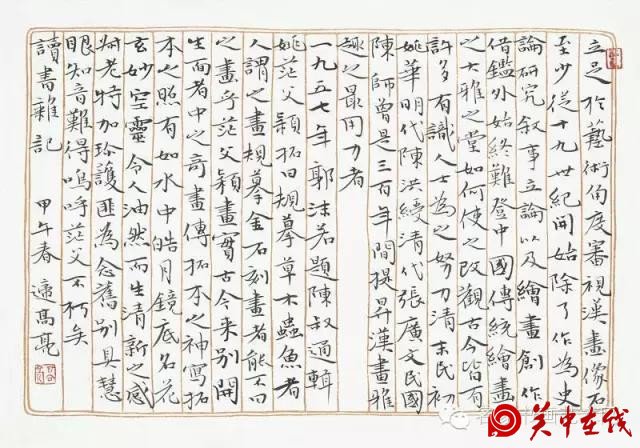 立足於藝術角度審視漢畫像石
至少從十九世紀開始除了作為史
論研究敘事立論以及繪畫創作
借鑑外始終難登中國傳統繪畫
之大雅之堂如何使之改觀古今皆有
許多有識人士為之努力清末民初
姚華明代陳洪綬清代張廣文民國
陳師曾是三百年間提昇漢畫雅
趣之最用力者
一九五七年郭沫若題陳叔通輯
姚茫父穎拓曰規摹草木蟲魚者
人謂之畫規摹金石刻畫者能不曰
之畫乎茫父穎畫實古今來別開
生面者中之奇畫傳拓本之神寫拓
本之照有如水中皓月鏡底名花
玄妙空靈令人油然而生清新之感
叔老特加珍護匪為念舊別具慧
眼知音難得嗚呼茫父不朽矣
讀書雜記 甲午春 適高亮
关中在线